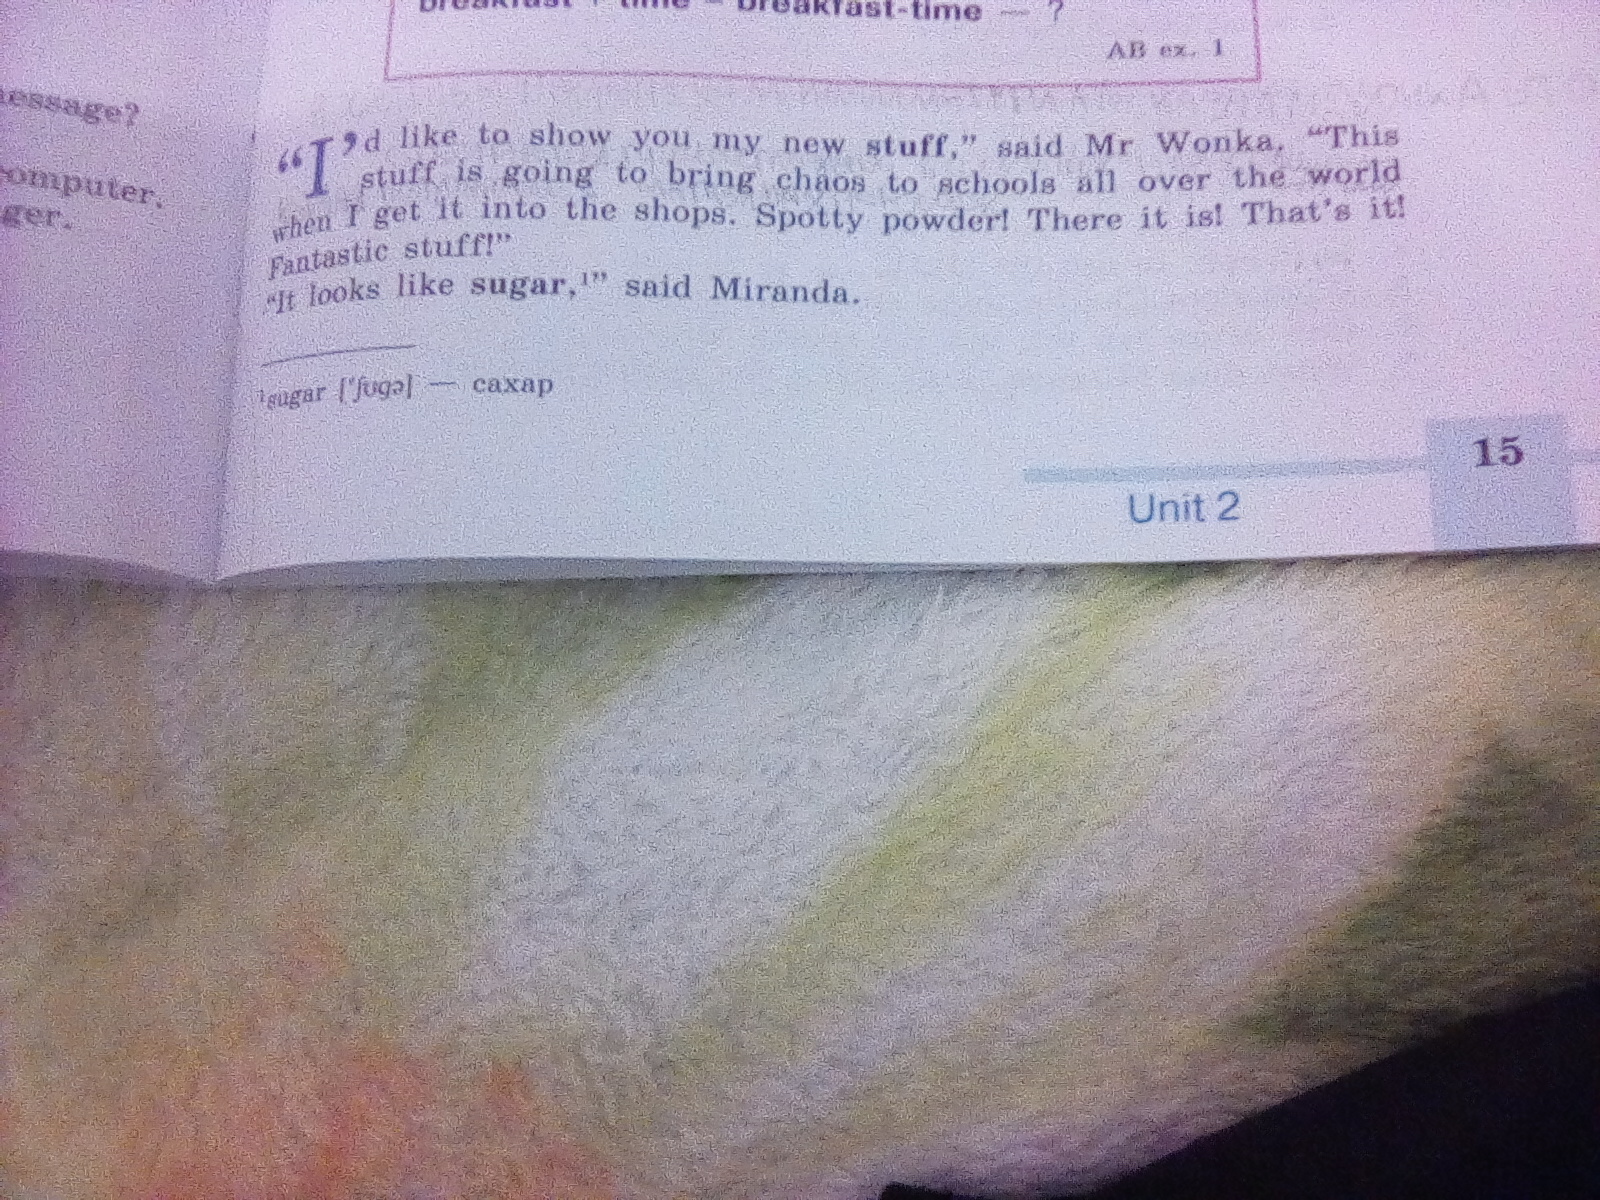 breakfast + time = breakfast-time — ?
AB ex. 1
essage?
omputer.
ger.
“I’d like to show you my new stuff,” said Mr Wonka. “This
stuff is going to bring chaos to schools all over the world
when I get it into the shops. Spotty powder! There it is! That’s it!
Fantastic stuff!”
“It looks like sugar,¹” said Miranda.
¹sugar [ˈʃʊgə] — сахар
15
Unit 2